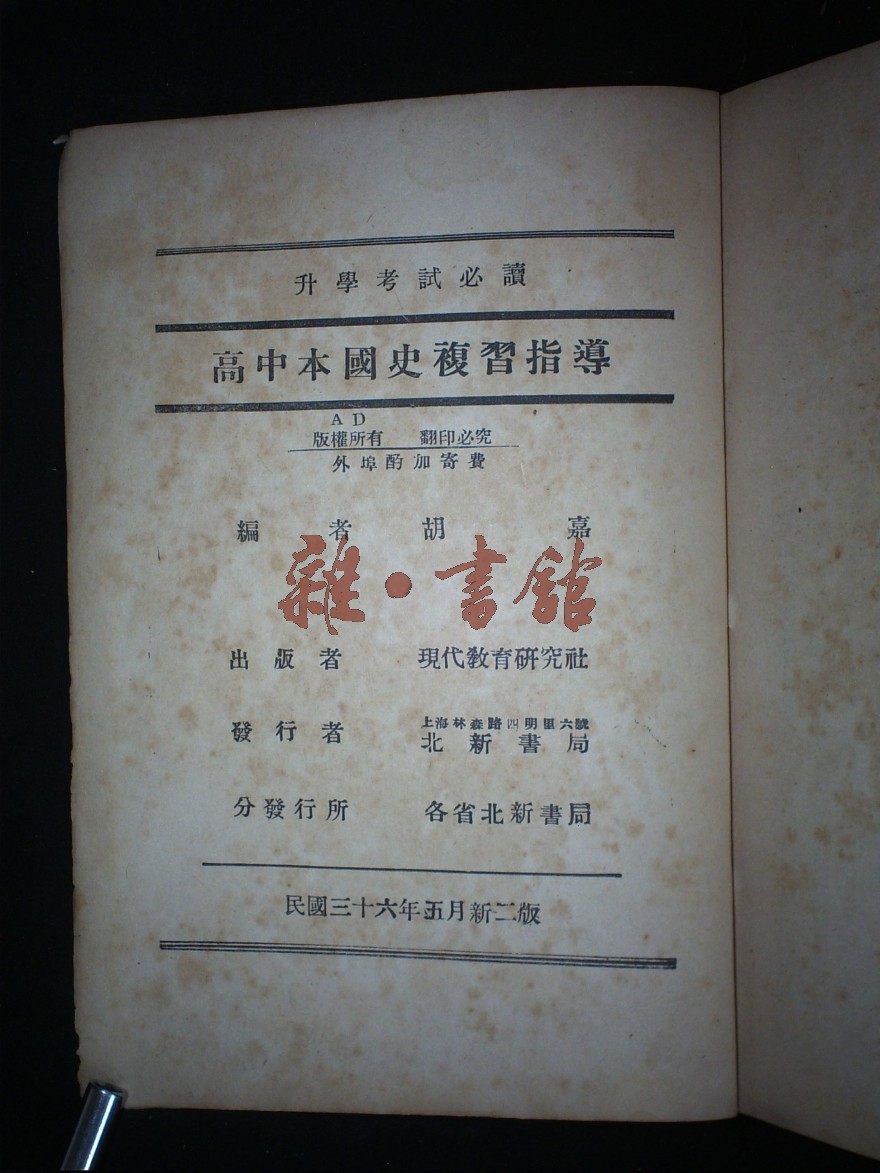 升學考試必讀
高中本國史複習指導
A D
版權所有 翻印必究
外埠酌加寄費
編者 胡嘉
雜·書館
出版者 現代教育研究社
發行者 上海林森路四明里六號
北新書局
分發行所 各省北新書局
民國三十六年五月新二版